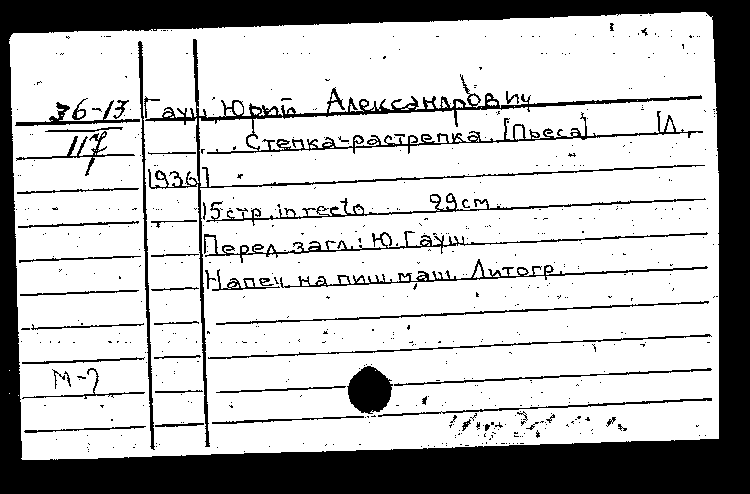 36-13
117
Гауш, Юрий Александрович
... Степка-растрепка. [Пьеса]. [Л.,
1936]
15 стр. in recto. 29 см.
Перед загл.: Ю. Гауш.
Напеч. на пиш. маш. Литогр.
М-7